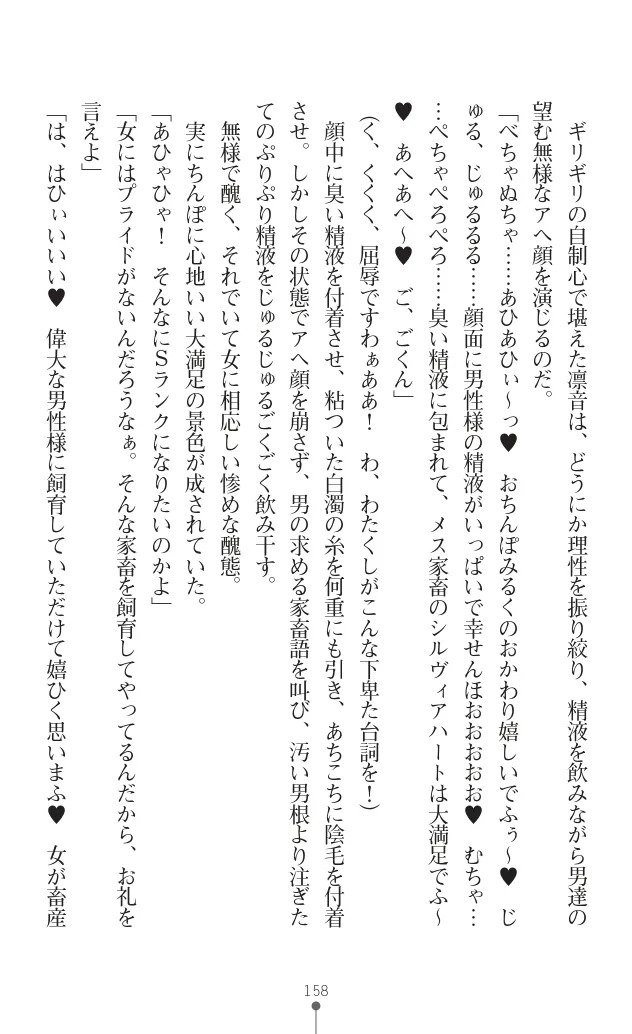 ギリギリの自制心で堪えた凛音は、どうにか理性を振り絞り、精液を飲みながら男達の
望む無様なアヘ顔を演じるのだ。
「べちゃぬちゃ……あひあひぃ～っ♥　おちんぽみるくのおかわり嬉しいでふぅ～♥　じ
ゅる、じゅるるる……顔面に男性様の精液がいっぱいで幸せんほおおおおお♥　むちゃ…
…ぺちゃぺろぺろ……臭い精液に包まれて、メス家畜のシルヴィアハートは大満足でふ～
♥　あへあへ～♥　ご、ごくん」
（く、くくく、屈辱ですわぁああ！　わ、わたくしがこんな下卑た台詞を！）
　顔中に臭い精液を付着させ、粘ついた白濁の糸を何重にも引き、あちこちに陰毛を付着
させ。しかしその状態でアヘ顔を崩さず、男の求める家畜語を叫び、汚い男根より注ぎた
てのぷりぷり精液をじゅるじゅるごくごく飲み干す。
　無様で醜く、それでいて女に相応しい惨めな醜態。
　実にちんぽに心地いい大満足の景色が成されていた。
「あひゃひゃ！　そんなにＳランクになりたいのかよ」
「女にはプライドがないんだろうなぁ。そんな家畜を飼育してやってるんだから、お礼を
言えよ」
「は、はひぃいいい♥　偉大な男性様に飼育していただけて嬉ひく思いまふ♥　女が畜産
158